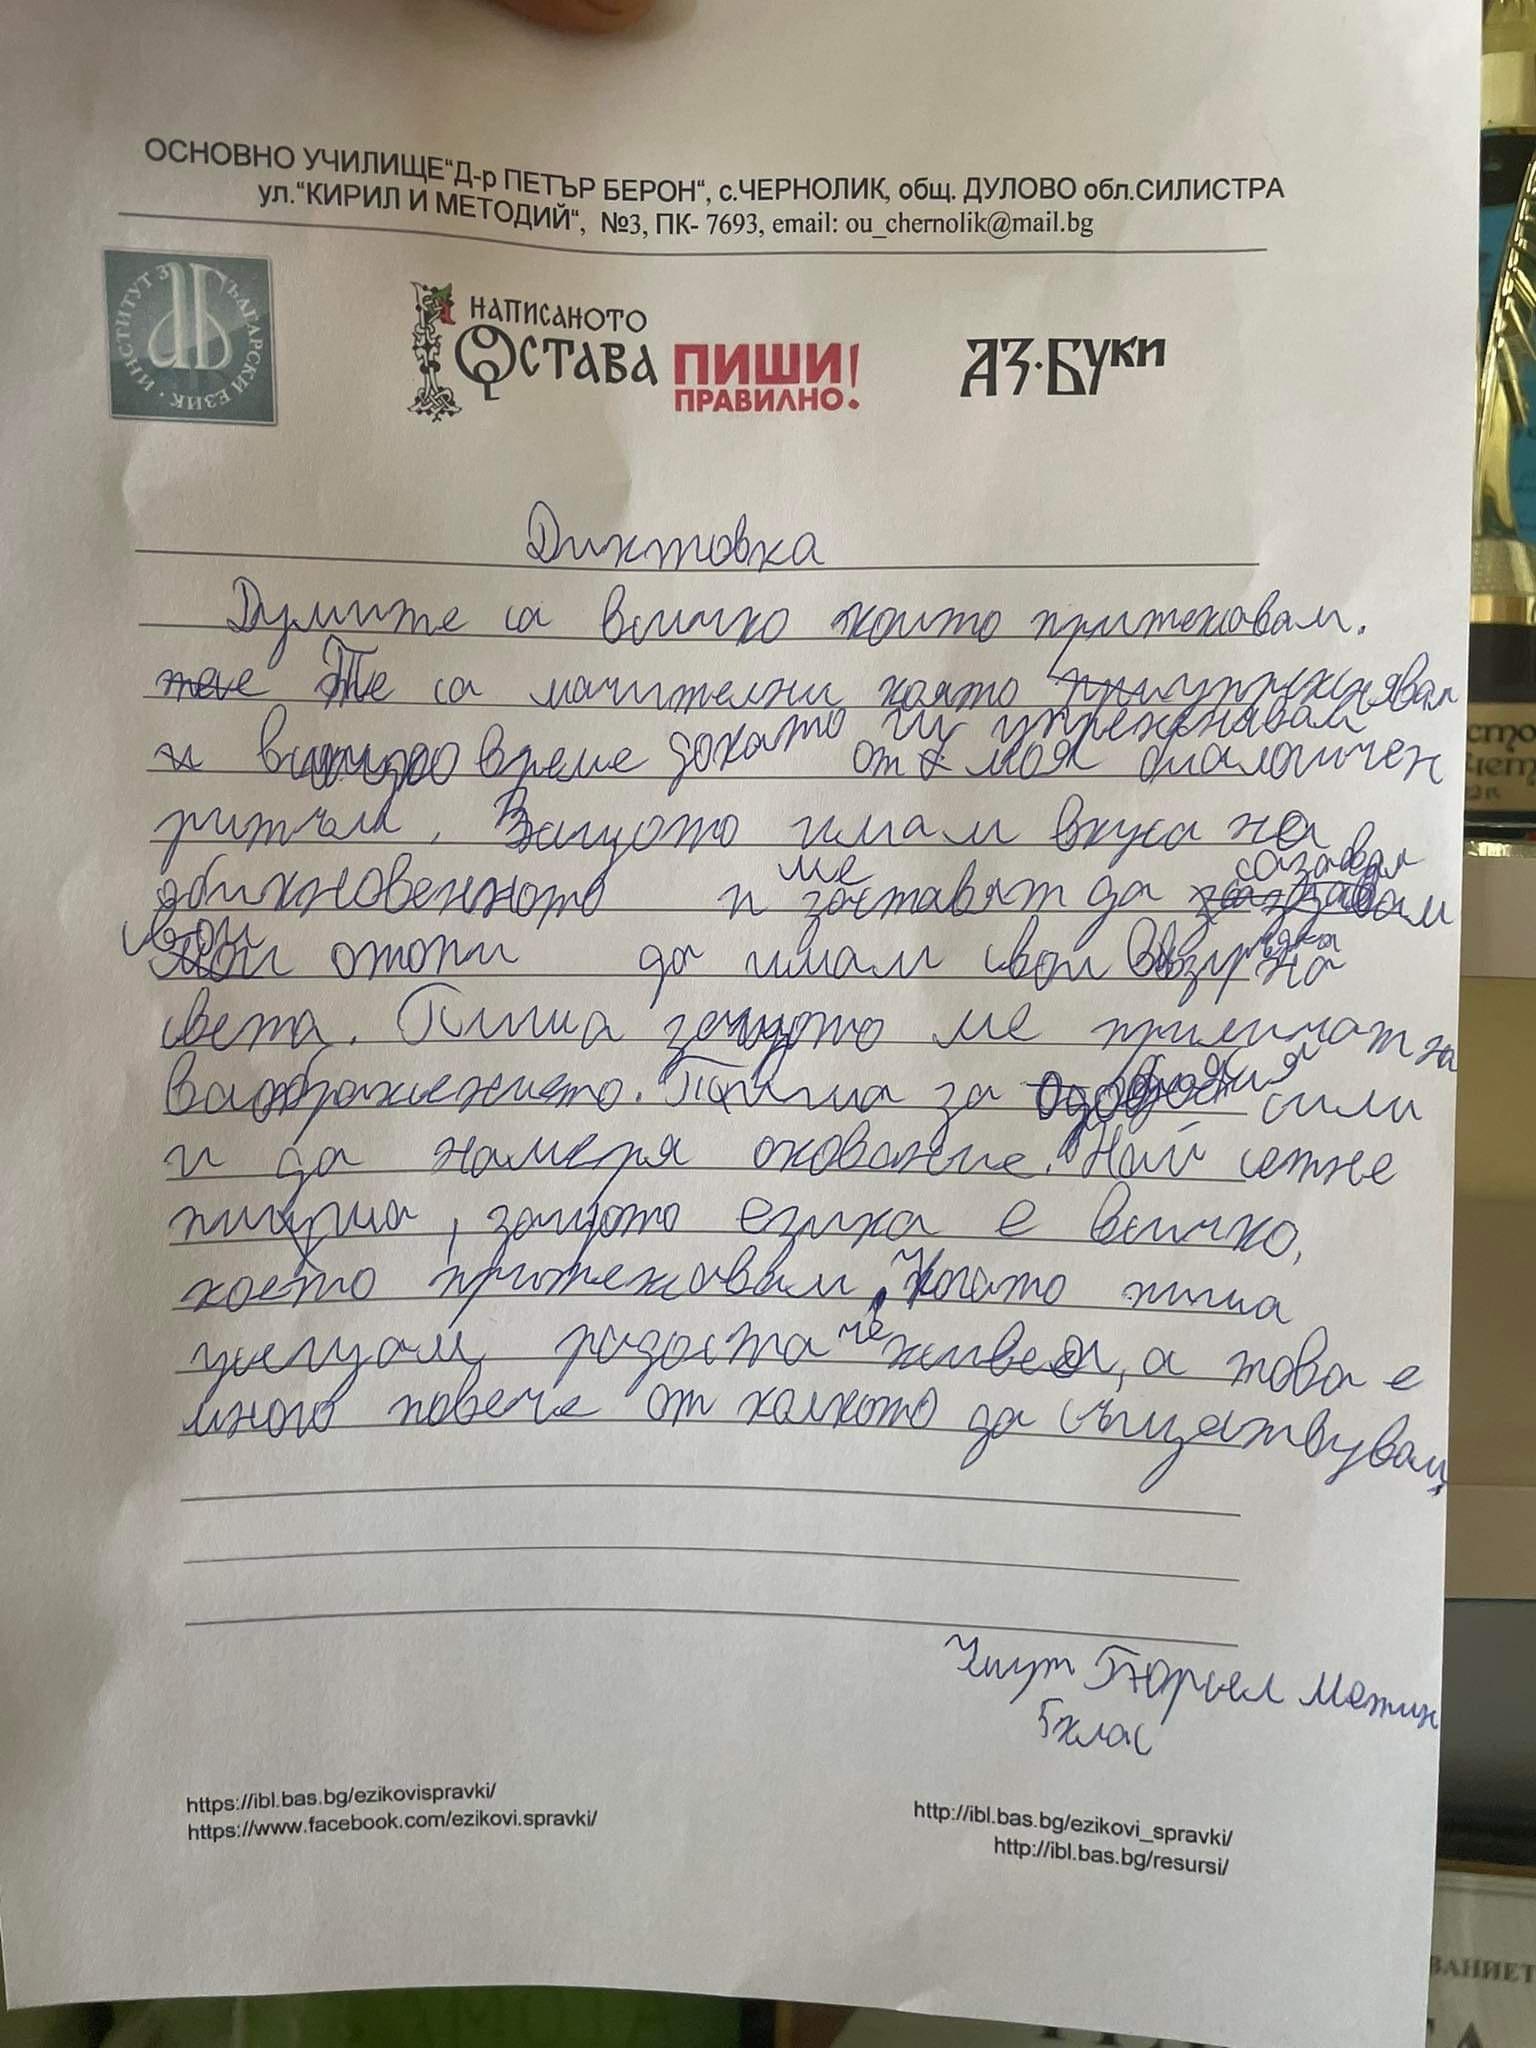 ОСНОВНО УЧИЛИЩЕ“Д-р ПЕТЪР БЕРОН“, с.ЧЕРНОЛИК, общ. ДУЛОВО обл.СИЛИСТРА
ул.“КИРИЛ И МЕТОДИЙ“, №3, ПК- 7693, email: ou_chernolik@mail.bg
ИНСТИТУТ ЗА БЪЛГАРСКИ ЕЗИК
НАПИСАНОТО
ОСТАВА
ПИШИ
ПРАВИЛНО!
АЗ·БУКИ
Диктовка
Думите са всичко които притежавам.
Те са мачителни която упрежнявам
и време докато ги упрежнявам от моя диалогичен
ритъм. Защото имам вкуса на
обикновенното и ме заставят да сазавам
свои опопи да имам свои на
света. Пиша защото ме приличат на
Ваображението. Пиша за сили
и да намеря окование. Най сетне
пиша, защото езика е всичко,
което притежавам, Когато пиша
усещам радоста че живея, а това е
много повече от колкото да съществувам,
5 клас
https://ibl.bas.bg/ezikovispravki/
https://www.facebook.com/ezikovi.spravki/
http://ibl.bas.bg/ezikovi_spravki/
http://ibl.bas.bg/resursi/